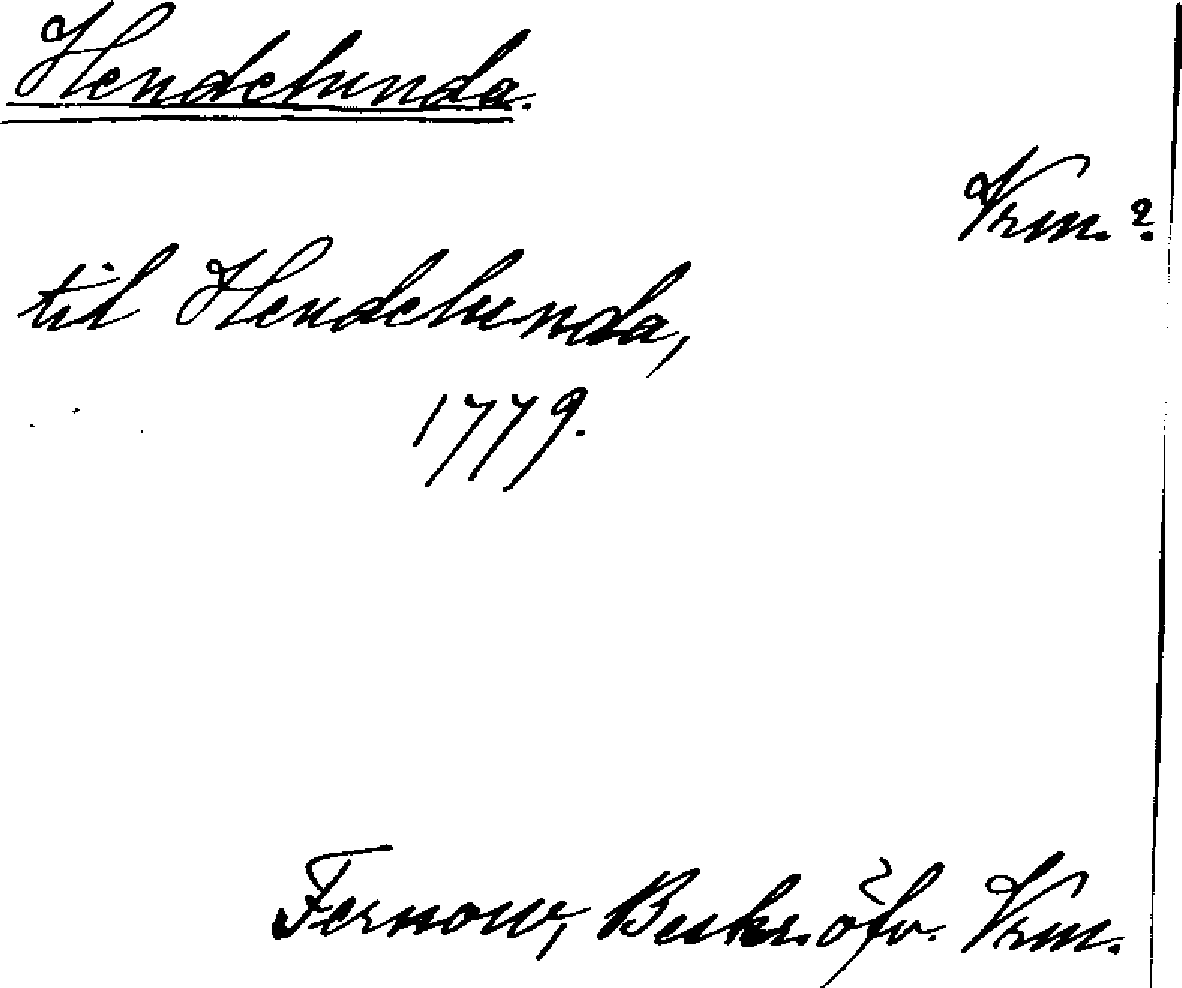 Hendelunda.
Vrm.?
til Hendelunda,
1779.
Fernow, Beskr. öfv. Vrm.